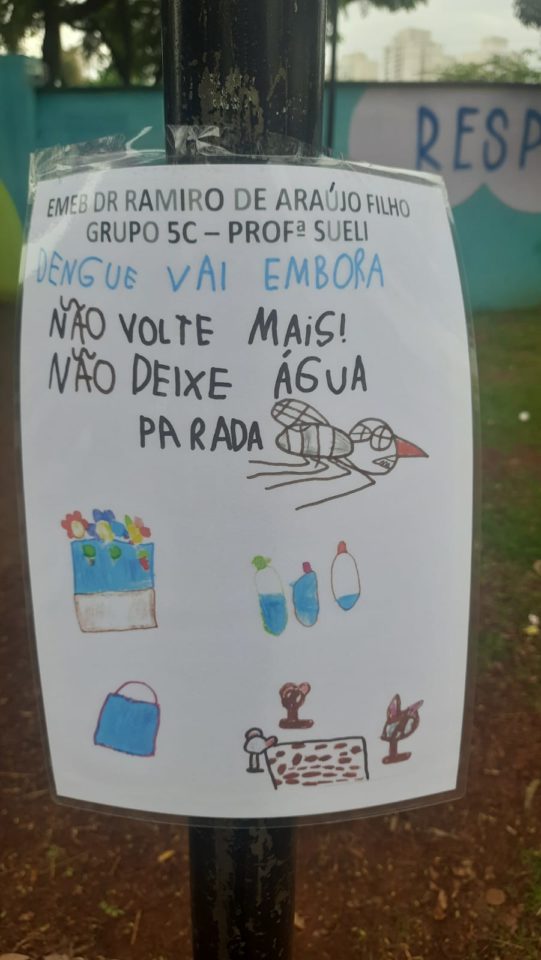 RESP
EMEB DR RAMIRO DE ARAÚJO FILHO
GRUPO 5C – PROFª SUELI
DENGUE VAI EMBORA
NÃO VOLTE MAIS!
NÃO DEIXE ÁGUA
PARADA